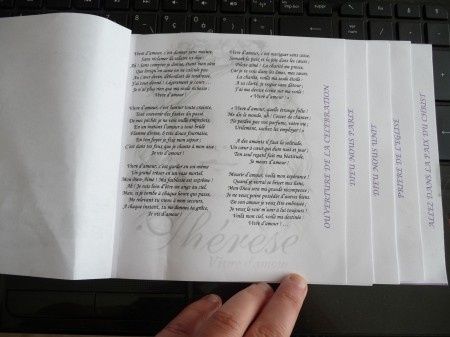 Vivre d'amour, c'est donner sans mesure,
Sans réclamer de salaire ici-bas ;
Ah ! Sans compter je donne, étant bien sûre
Que lorsqu'on aime on ne calcule pas
Au Coeur divin, débordant de tendresse,
J'ai tout donné ! Légèrement je cours...
Je n'ai plus rien que ma seule richesse :
Vivre d'amour !
Vivre d'amour, c'est bannir toute crainte,
Tout souvenir des fautes du passé.
De mes péchés je ne vois nulle empreinte,
En un instant l'amour a tout brûlé
Flamme divine, ô très douce fournaise,
En ton foyer je fixe mon séjour.
C'est dans tes feux que je chante à mon aise :
Je vis d'amour !
Vivre d'amour, c'est garder en soi-même
Un grand trésor en un vase mortel.
Mon Bien-Aimé ! Ma faiblesse est extrême !
Ah ! Je suis loin d'être un ange du ciel.
Mais, si je tombe à chaque heure qui passe,
Me relevant tu viens à mon secours,
A chaque instant, tu me donnes ta grâce,
Je vis d'amour !
Vivre d'amour, c'est naviguer sans cesse,
Semant la paix et la joie dans les coeurs ;
Pilote aimé ! La charité me presse,
Car je te vois dans les âmes, mes soeurs.
La charité, voilà ma seule étoile :
A sa clarté je vogue sans détour,
J'ai ma devise écrite sur ma voile :
« Vivre d'amour ! »
« Vivre d'amour, quelle étrange folie !
Me dit le monde, ah ! Cessez de chanter ;
Ne perdez pas vos parfums, votre vie ;
Utilement, sachez les employer ! »
A des amants il faut la solitude,
Un coeur à coeur qui dure nuit et jour,
Ton seul regard fait ma béatitude,
Je meurs d'amour !
Mourir d'amour, voilà mon espérance !
Quand je verrai se briser mes liens,
Mon Dieu sera ma grande récompense ;
Je ne veux point posséder d'autres biens.
En son amour je veux être embrasée ;
Je veux le voir m'unir à lui toujours !
Voilà mon ciel, voilà ma destinée
Vivre d'amour ! ...
Thérèse
Vivre d'amour
OUVERTURE DE LA CELEBRATION
DIEU NOUS PARLE
DIEU NOUS UNIT
PRIERE DE L'EGLISE
ALLEZ DANS LA PAIX DU CHRIST